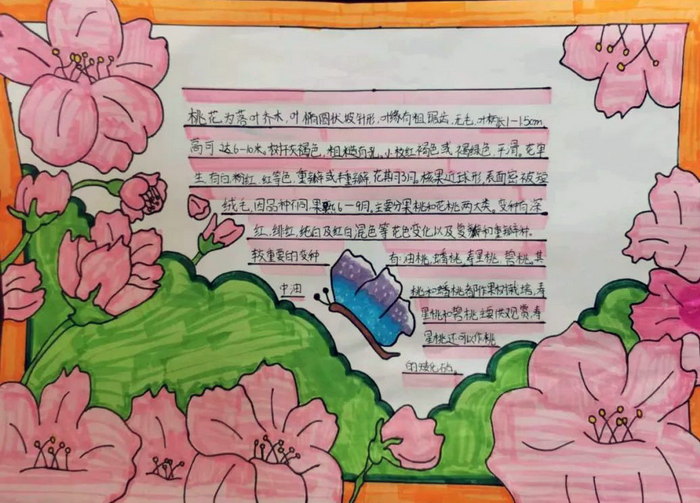 桃花为落叶乔木,叶椭圆状披针形,叶缘有粗锯齿,无毛,叶柄长1-1.5cm,
高可达6-10米,树干灰褐色,粗糙有孔。小枝红褐色或褐绿色,平滑。花单
生,有白粉红、红等色,重瓣或半重瓣,花期3月。核果近球形,表面密被短
绒毛,因品种不同果熟6-9月。主要分果桃和花桃两大类。变种有深
红、绯红、纯白及红白混色等花色变化以及复瓣和重瓣种。
较重要的变种 有:油桃、蟠桃、寿星桃、碧桃。其
中油 桃和蟠桃都作果树栽培,寿
星桃和碧桃主要供观赏,寿
星桃还可以作桃
的矮化砧。